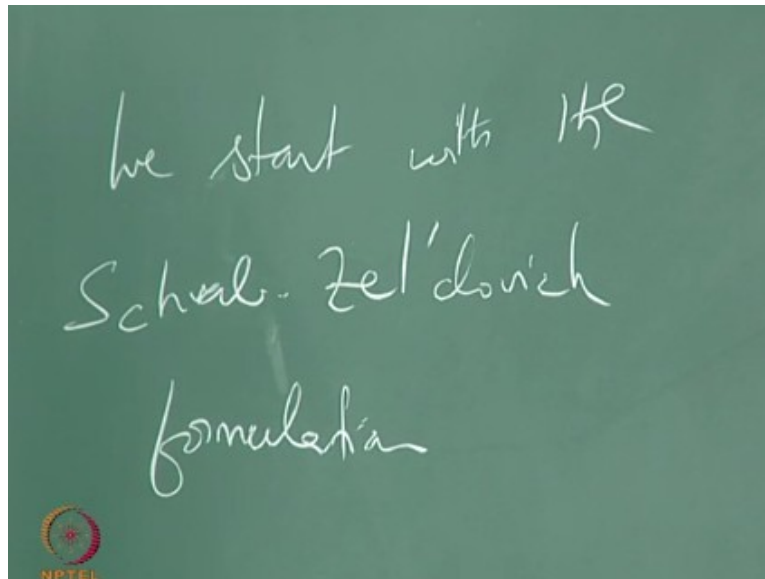 We start with the
Schvab-Zel'dovich
formulation
NPTEL